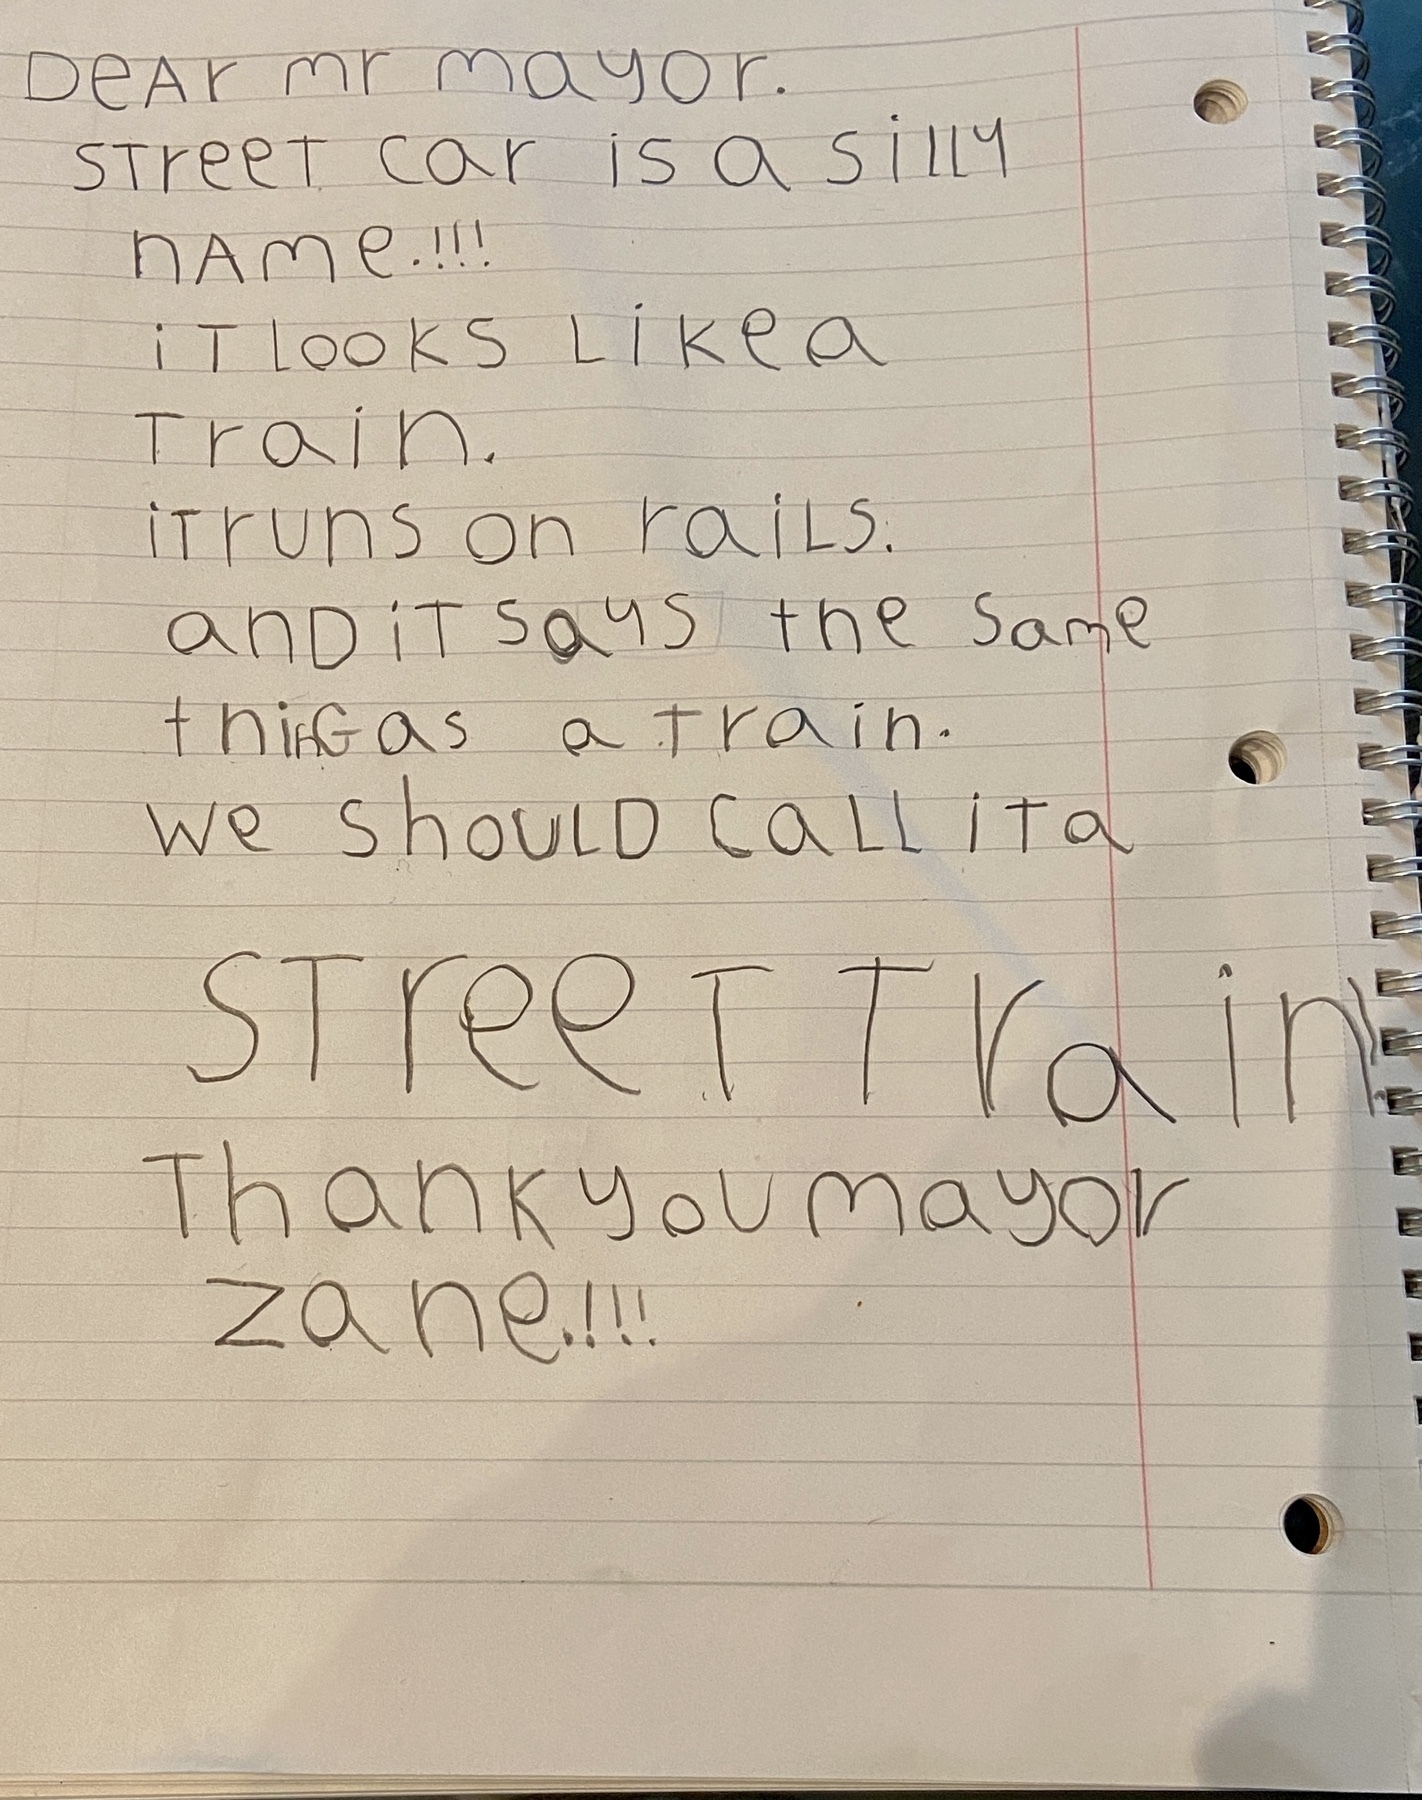 DeAr mr mayor.
STreeT car is a silly
nAme.!!!
iT looks Like a
Train.
iT runs on raiLs.
anD iT says the same
thinG as a train.
we shoULD CaLL iT a
STreeT Train!
Thank you mayor
zane.!!!